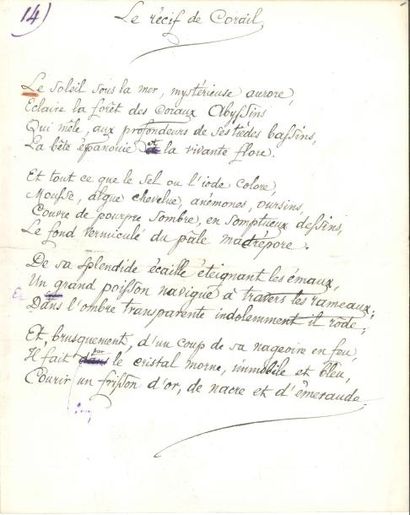 14)
Le récif de Corail
Le soleil sous la mer, mystérieuse aurore,
Eclaire la forêt des coraux Abyssins
Qui mêle, aux profondeurs de ses tièdes bassins,
La bête épanouie et la vivante flore.
Et tout ce que le sel ou l'iode colore,
Mousse, algue chevelue, anémones, oursins,
Couvre de pourpre sombre, en somptueux dessins,
Le fond vermiculé du pâle madrépore.
De sa splendide écaille éteignant les émaux,
Un grand poisson navigue à travers les rameaux;
Dans l'ombre transparente indolemment il rôde;
Et, brusquement, d'un coup de sa nageoire en feu,
Il fait dans le cristal morne, immobile et bleu,
Courir un frisson d'or, de nacre et d'émeraude.